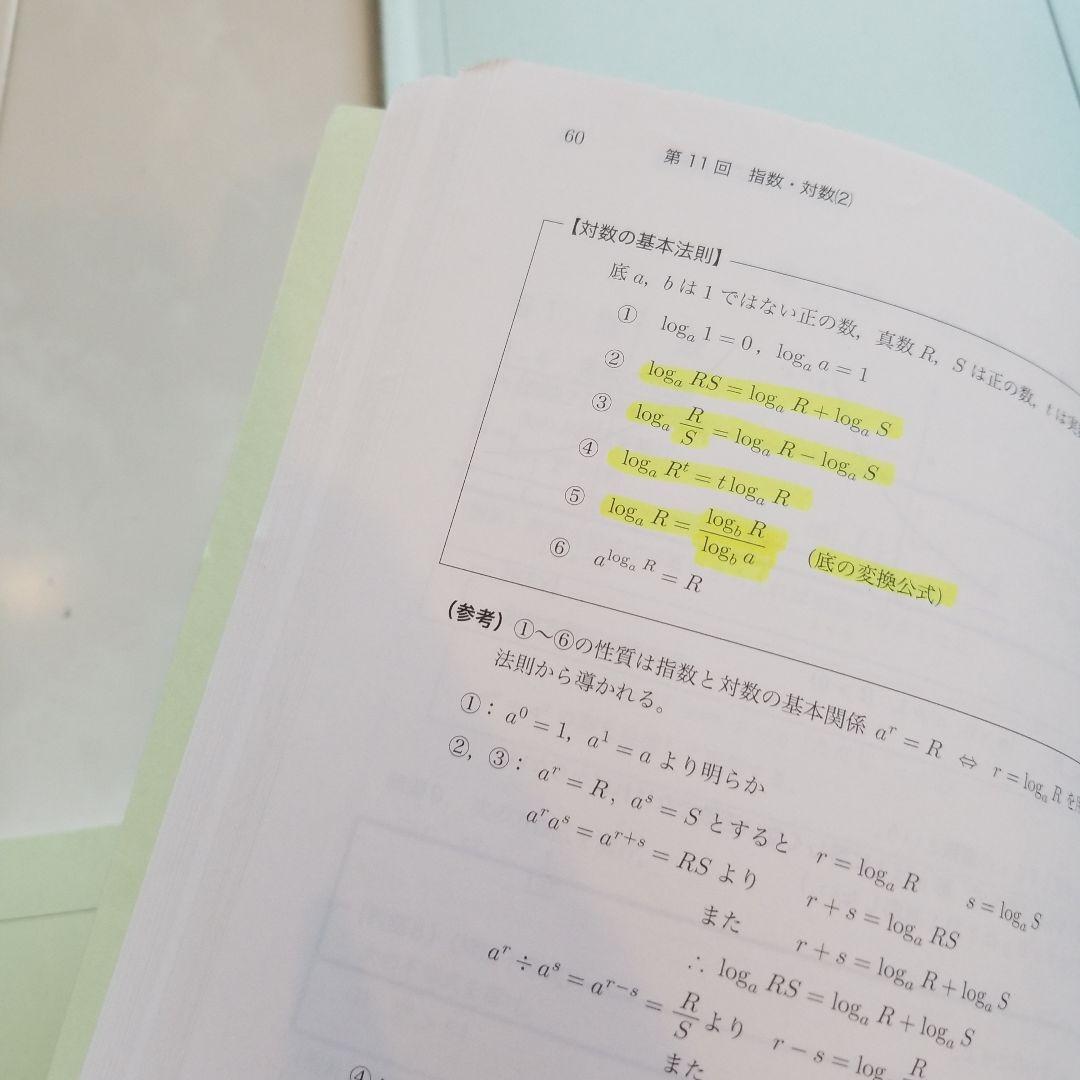 60
第 11 回 指数・対数(2)
【対数の基本法則】
底 a, b は 1 ではない正の数, 真数 R, S は正の数, t は実
① logₐ 1 = 0, logₐ a = 1
② logₐ RS = logₐ R + logₐ S
③ logₐ R/S = logₐ R − logₐ S
④ logₐ Rᵗ = t logₐ R
⑤ logₐ R = log_b R / log_b a (底の変換公式)
⑥ a^{logₐ R} = R
(参考) ①〜⑥の性質は指数と対数の基本関係 aʳ = R ⇔ r = logₐ R を
法則から導かれる。
①: a⁰ = 1, a¹ = a より明らか
②, ③: aʳ = R, aˢ = S とすると r = logₐ R s = logₐ S
aʳaˢ = aʳ⁺ˢ = RS より r + s = logₐ RS
また r + s = logₐ R + logₐ S
∴ logₐ RS = logₐ R + logₐ S
aʳ ÷ aˢ = aʳ⁻ˢ = R/S より r − s = log R
また
④